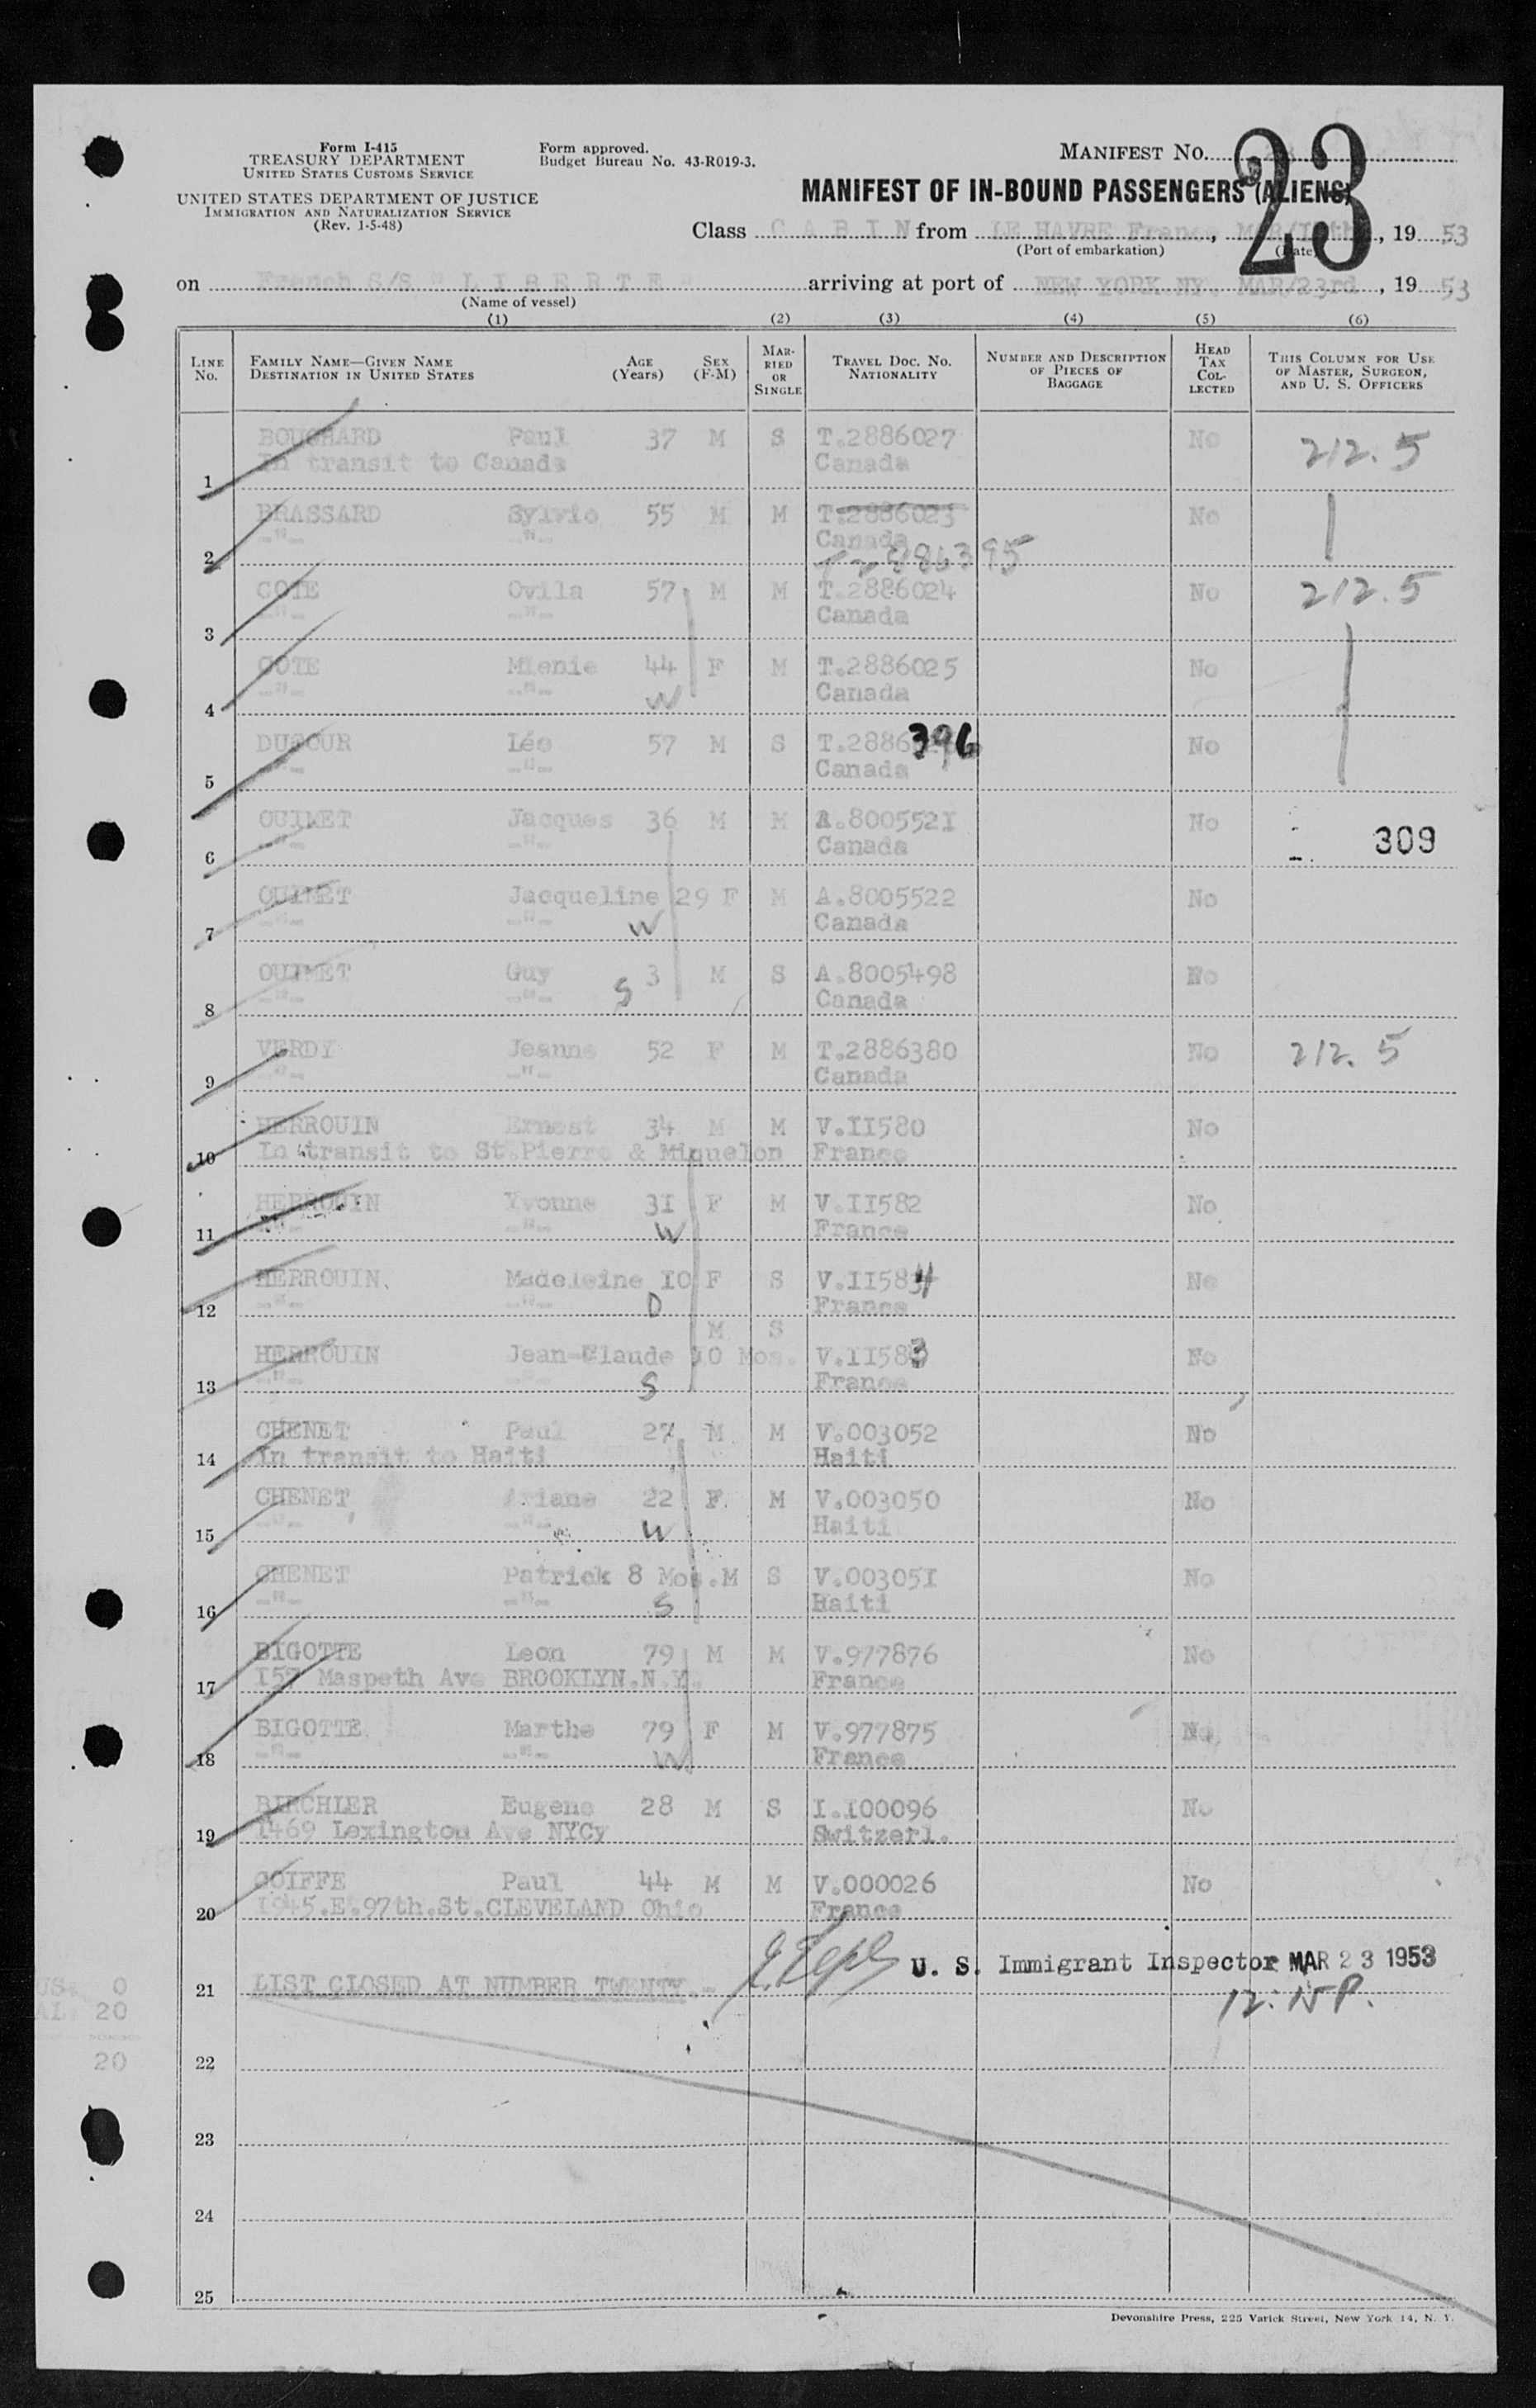 Form I-415
TREASURY DEPARTMENT
UNITED STATES CUSTOMS SERVICE
UNITED STATES DEPARTMENT OF JUSTICE
IMMIGRATION AND NATURALIZATION SERVICE
(Rev. 1-5-48)
Form approved.
Budget Bureau No. 43-R019-3.
MANIFEST NO. 23
MANIFEST OF IN-BOUND PASSENGERS (ALIENS)
Class C A B I N from LE HAVRE France, MAR/ , 19 53
(Port of embarkation) (Date)
on French S/S " L I B E R T E " arriving at port of NEW YORK NY. MAR/23rd , 19 53
(Name of vessel)
(1) (2) (3) (4) (5) (6)
LINE NO. FAMILY NAME—GIVEN NAME DESTINATION IN UNITED STATES AGE (Years) SEX (F-M) MARRIED OR SINGLE TRAVEL DOC. NO. NATIONALITY NUMBER AND DESCRIPTION OF PIECES OF BAGGAGE HEAD TAX COLLECTED THIS COLUMN FOR USE OF MASTER, SURGEON, AND U. S. OFFICERS
BOUCHARD Paul 37 M S T.2886027 No 212.5
1 In transit to Canada Canada
BRASSARD Sylvio 55 M M T.2886023 No
2 -"- -"- Canada
T 2886395
COTE Ovila 57 M M T.2886024 No 212.5
3 -"- -"- Canada
COTE Mienie 44 F M T.2886025 No
4 -"- -"- W Canada
DUFOUR Léo 57 M S T.2886396 No
5 -"- -"- Canada
OUIMET Jacques 36 M M A.8005521 No
6 -"- -"- Canada 309
OUIMET Jacqueline 29 F M A.8005522 No
7 -"- -"- W Canada
OUIMET Guy 3 M S A.8005498 No
8 -"- -"- S Canada
VERDY Jeanne 52 F M T.2886380 No 212.5
9 -"- -"- Canada
HERROUIN Ernest 34 M M V.II580 No
10 In transit to St.Pierre & Miquelon France
HERROUIN Yvonne 3I F M V.II582 No
11 -"- -"- W France
HERROUIN. Madeleine IO F S V.II584 No
12 -"- -"- D France
M S
HERROUIN Jean-Claude 10 Mos. V.II583 No
13 -"- S France
CHENET Paul 27 M M V.003052 No
14 In transit to Haiti Haiti
CHENET Ariane 22 F. M V.003050 No
15 -"- -"- W Haiti
CHENET Patrick 8 Mos.M S V.00305I No
16 -"- -"- S Haiti
BIGOTTE Leon 79 M M V.977876 No
17 157 Maspeth Ave BROOKLYN.N.Y. France
BIGOTTE Marthe 79 F M V.977875 No
18 -"- -"- W France
BIRCHLER Eugene 28 M S I.I00096 No
19 1469 Lexington Ave NYCy Switzerl.
COIFFE Paul 44 M M V.000026 No
20 1945.E.97th.St.CLEVELAND Ohio France
U. S. Immigrant Inspector MAR 23 1953
21 LIST CLOSED AT NUMBER TWENTY.-
12.15 P.
US: 0
AL: 20
20
22
23
24
25
Devonshire Press, 225 Varick Street, New York 14, N. Y.